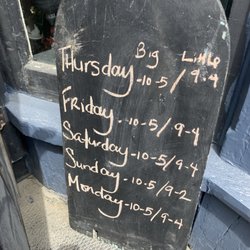 Big Little
Thursday -10-5/9-4
Friday -10-5/9-4
Saturday -10-5/9-4
Sunday -10-5/9-2
Monday -10-5/9-4